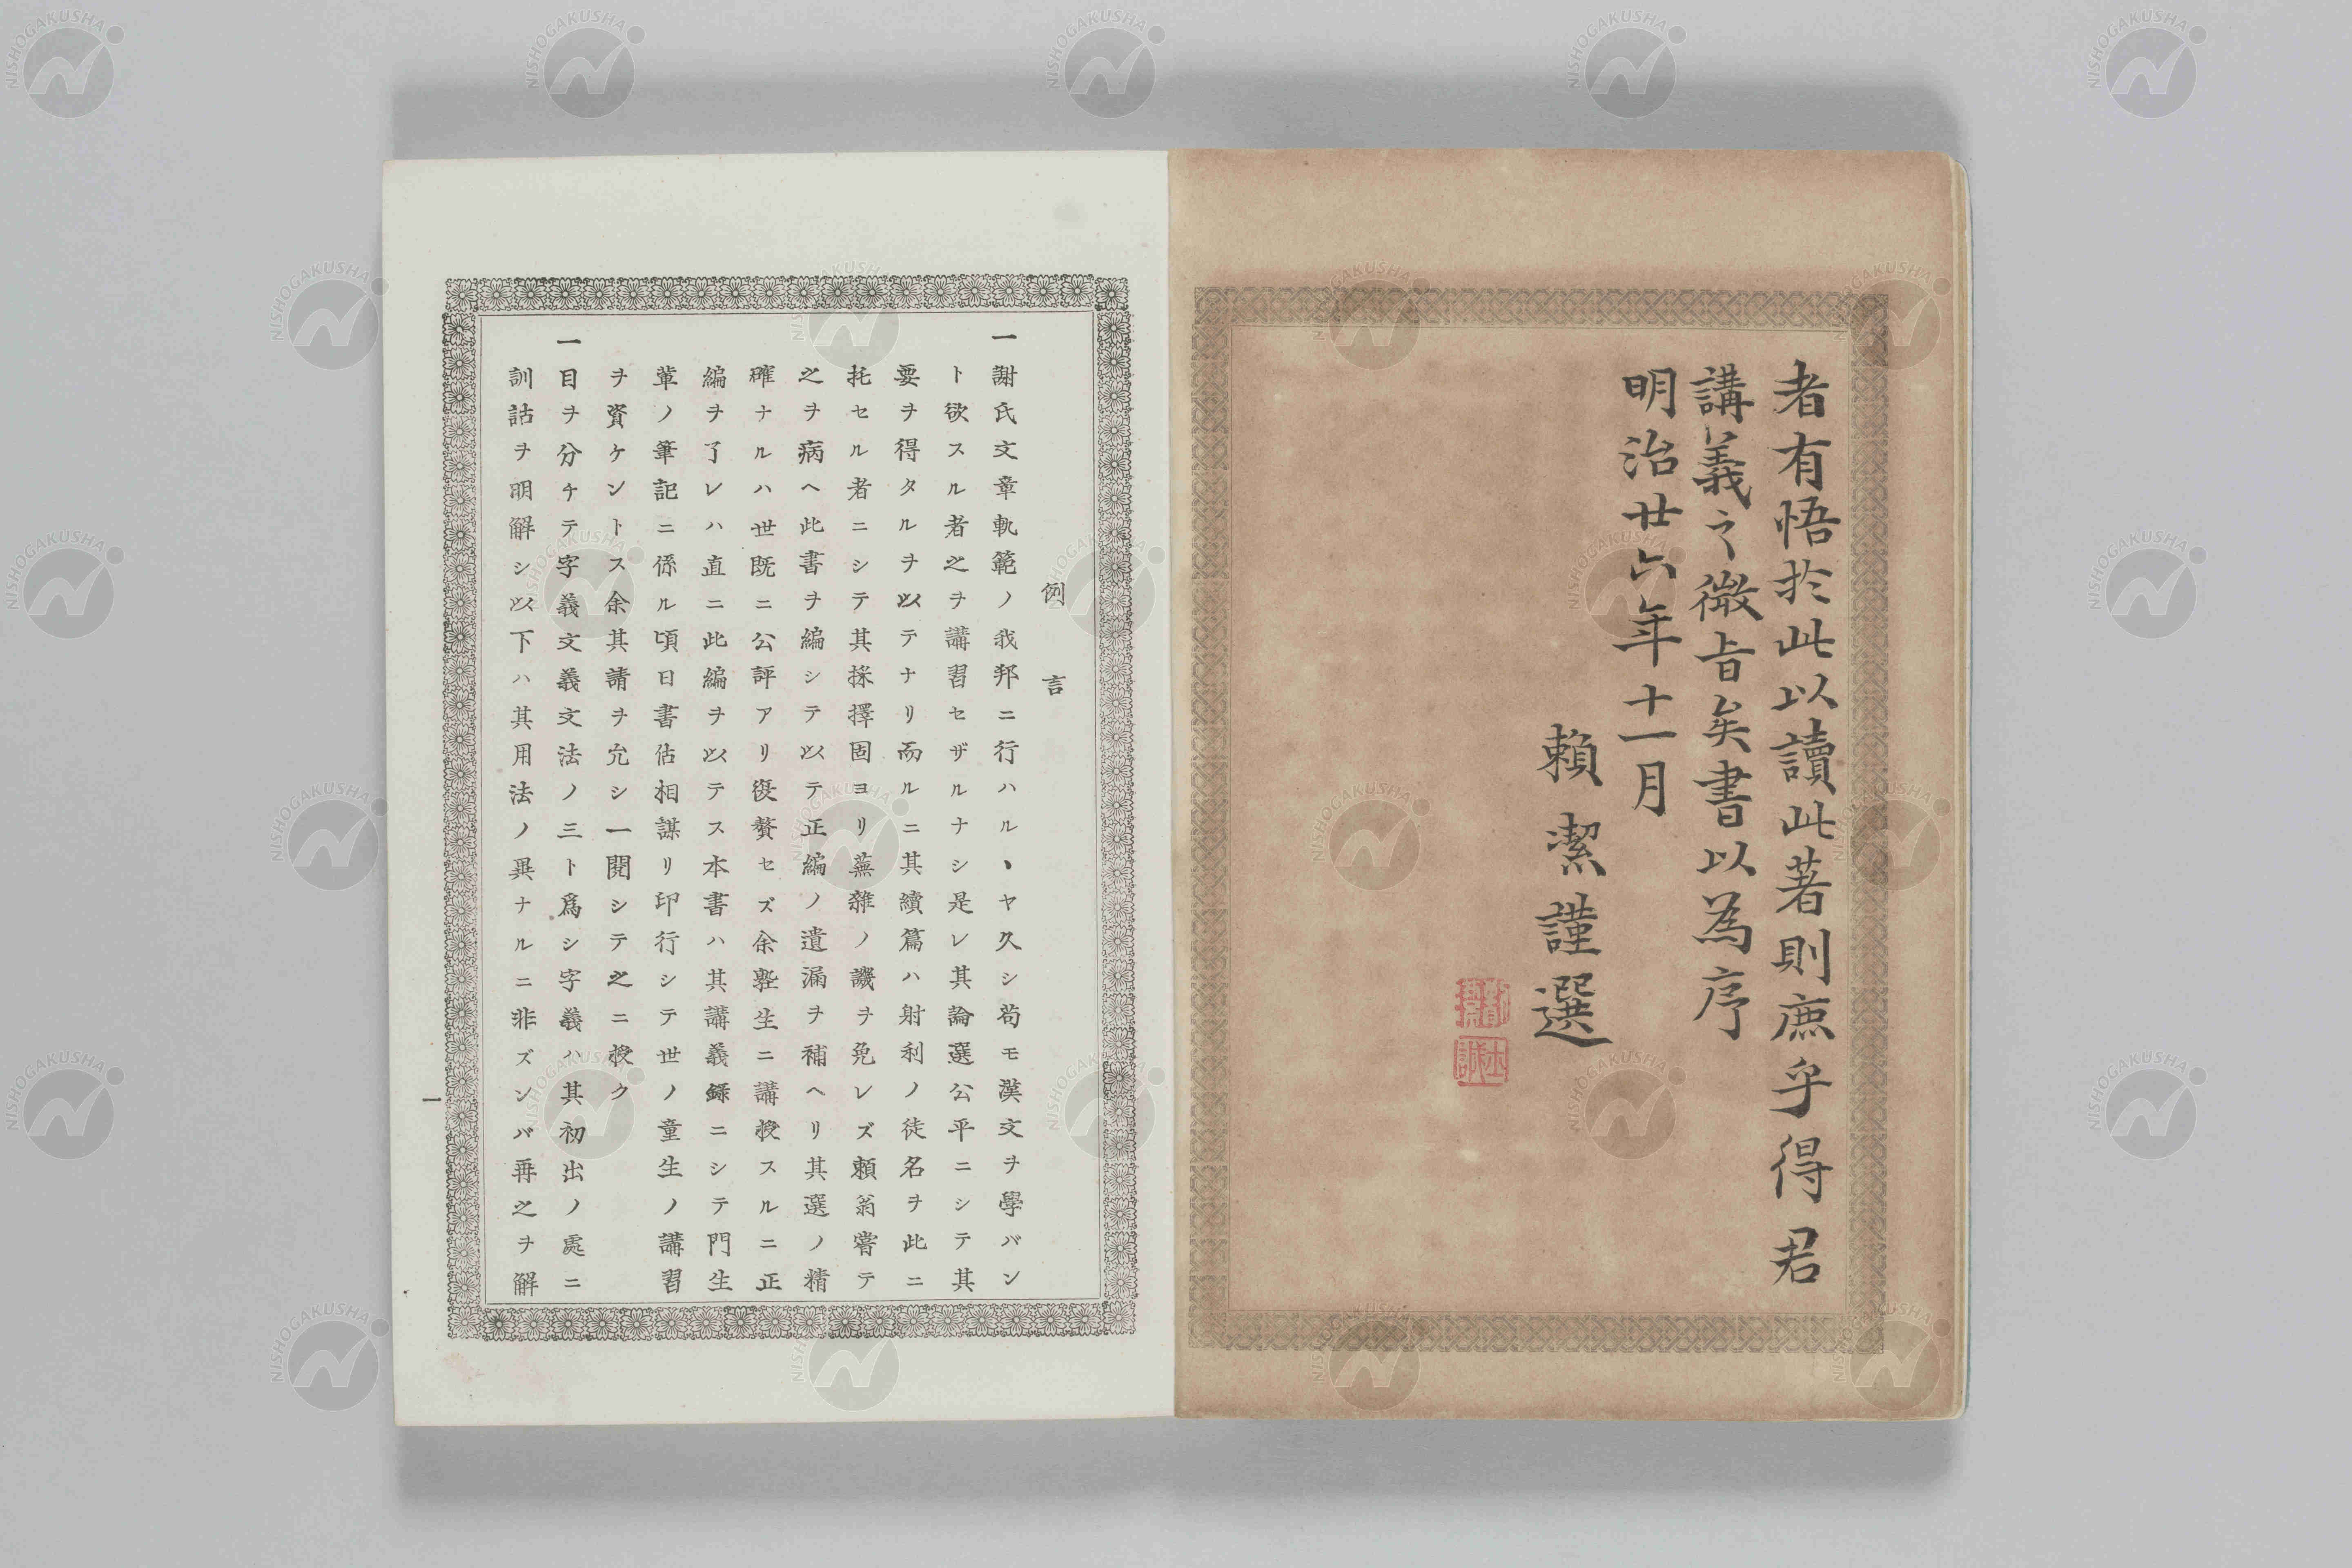 者有悟於此以讀此著則庶乎得君
講義之微旨矣書以為序
明治廿六年十一月
賴潔謹選
例言
一謝氏文章軌範ノ我邦ニ行ハルヽヤ久シ苟モ漢文ヲ學バン
ト欲スル者之ヲ講習セザルナシ是レ其論選公平ニシテ其
要ヲ得タルヲ以テナリ而ルニ其續篇ハ射利ノ徒名ヲ此ニ
托セル者ニシテ其採擇固ヨリ蕪雜ノ譏ヲ免レズ賴翁嘗テ
之ヲ病ヘ此書ヲ編シテ以テ正編ノ遺漏ヲ補ヘリ其選ノ精
確ナルハ世既ニ公評アリ復贅セズ余塾生ニ講授スルニ正
編ヲ了レハ直ニ此編ヲ以テス本書ハ其講義錄ニシテ門生
輩ノ筆記ニ係ル頃日書估相謀リ印行シテ世ノ童生ノ講習
ヲ資ケントス余其請ヲ允シ一閱シテ之ニ授ク
一目ヲ分チテ字義文義文法ノ三ト爲シ字義ハ其初出ノ處ニ
訓詁ヲ明解シ以下ハ其用法ノ異ナルニ非ズンバ再之ヲ解
一
NISHOGAKUSHA